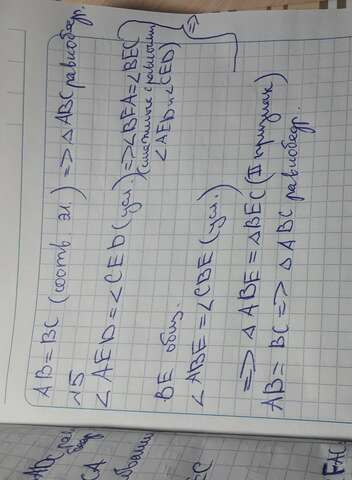 AB = BC (соотв. эл.) => △ABC равнобедр.
√5
∠AED = ∠CED (усл.) => ∠BEA = ∠BEC
(смежные с равными
∠AED и ∠CED)
=>
BE общ.
∠ABE = ∠CBE (усл.)
=> △ABE = △BEC (II признак)
AB = BC => △ABC равнобедр.